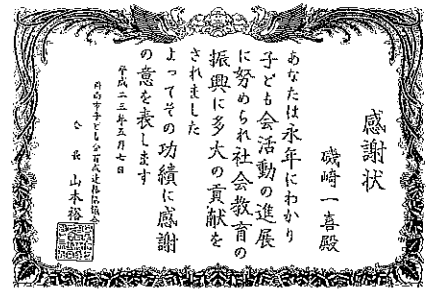 感謝状
磯崎一喜殿
あなたは永年にわかり
子ども会活動の進展
に努められ社会教育の
振興に多大の貢献を
されました
よってその功績に感謝
の意を表します
平成二三年五月七日
会長 山本裕